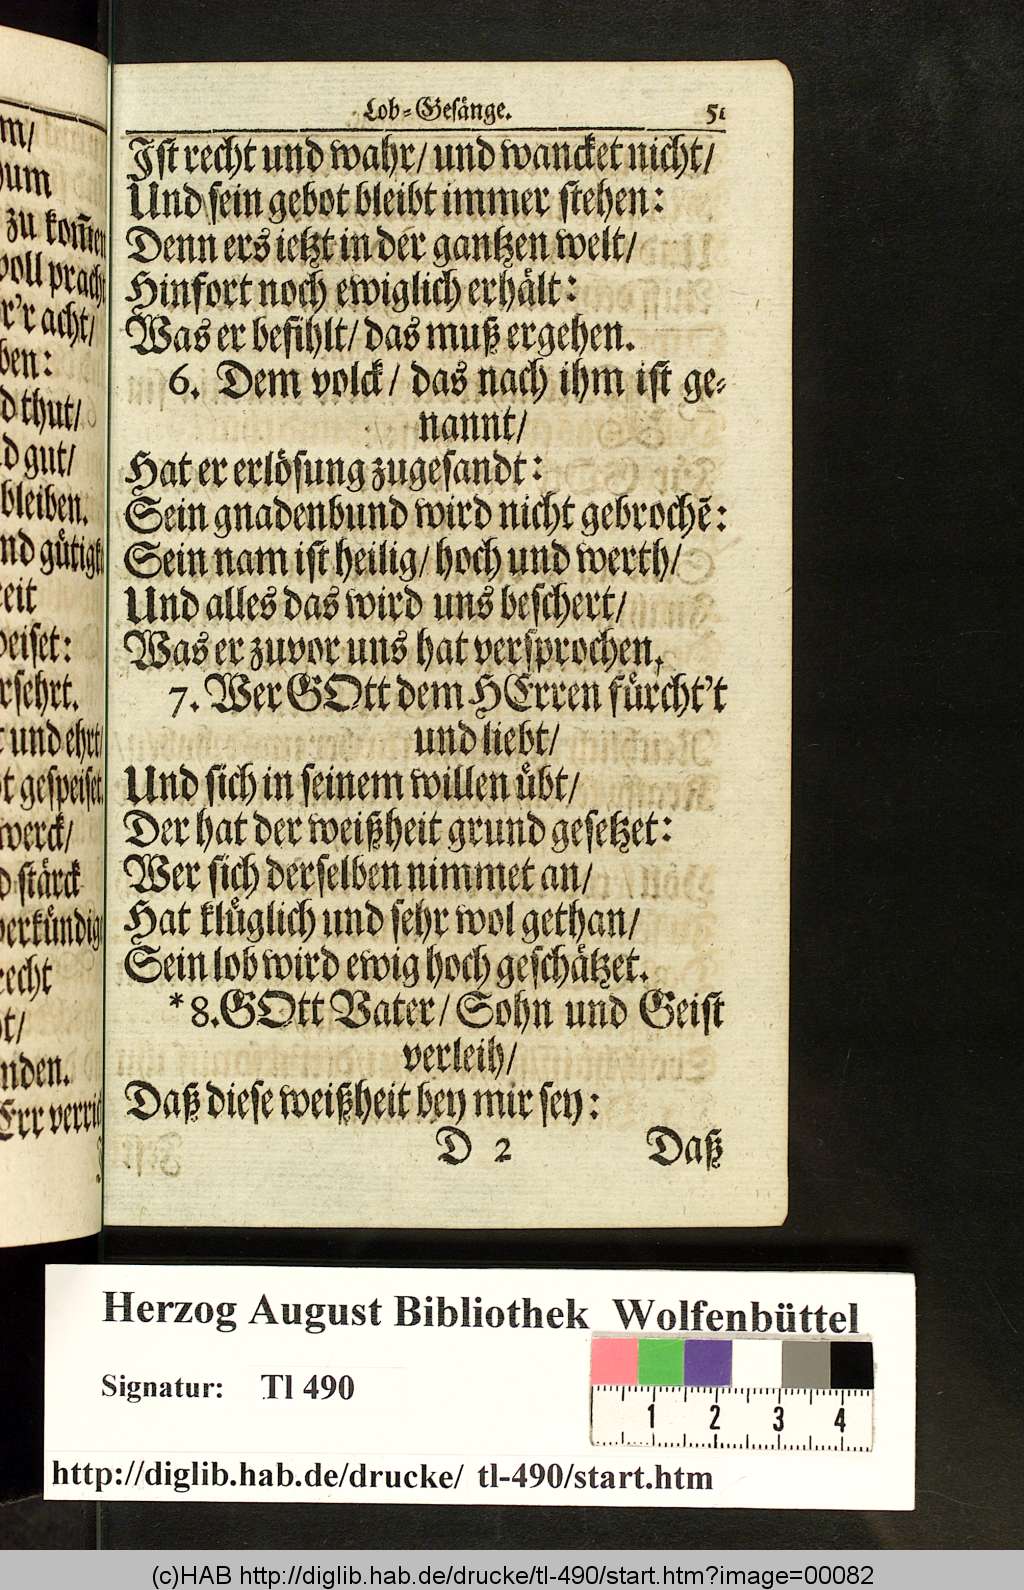 m/
um
zu kom̃en
voll pracht
r'r acht/
ben:
d thut/
d gut/
bleiben.
nd gütigk
eit
peiset:
rsehrt.
t und ehrt/
t gespeiset.
werck/
d stärck
verkündig
recht
t/
nden.
Err verrich
Lob-Gesänge. 51
Ist recht und wahr/ und wancket nicht/
Und sein gebot bleibt immer stehen:
Denn ers ietzt in der gantzen welt/
Hinfort noch ewiglich erhält:
Was er befihlt/ das muß ergehen.
6. Dem volck/ das nach ihm ist ge-
nannt/
Hat er erlösung zugesandt:
Sein gnadenbund wird nicht gebrochẽ:
Sein nam ist heilig/ hoch und werth/
Und alles das wird uns beschert/
Was er zuvor uns hat versprochen.
7. Wer GOtt dem HErren fürcht't
und liebt/
Und sich in seinem willen übt/
Der hat der weißheit grund gesetzet:
Wer sich derselben nimmet an/
Hat klüglich und sehr wol gethan/
Sein lob wird ewig hoch geschätzet.
*8. GOtt Vater/ Sohn und Geist
verleih/
Daß diese weißheit bey mir sey:
D 2 Daß
Herzog August Bibliothek Wolfenbüttel
Signatur: Tl 490
1 2 3 4
http://diglib.hab.de/drucke/ tl-490/start.htm
(c)HAB http://diglib.hab.de/drucke/tl-490/start.htm?image=00082